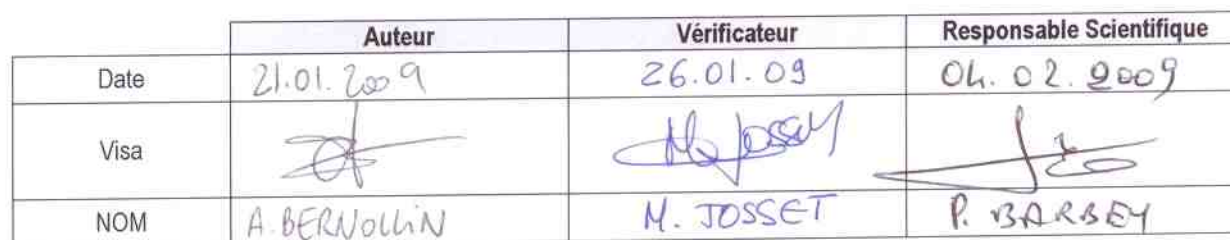 Auteur Vérificateur Responsable Scientifique
Date 21.01.2009 26.01.09 04.02.2009
Visa
NOM A. BERNOLLIN M. JOSSET P. BARBEY